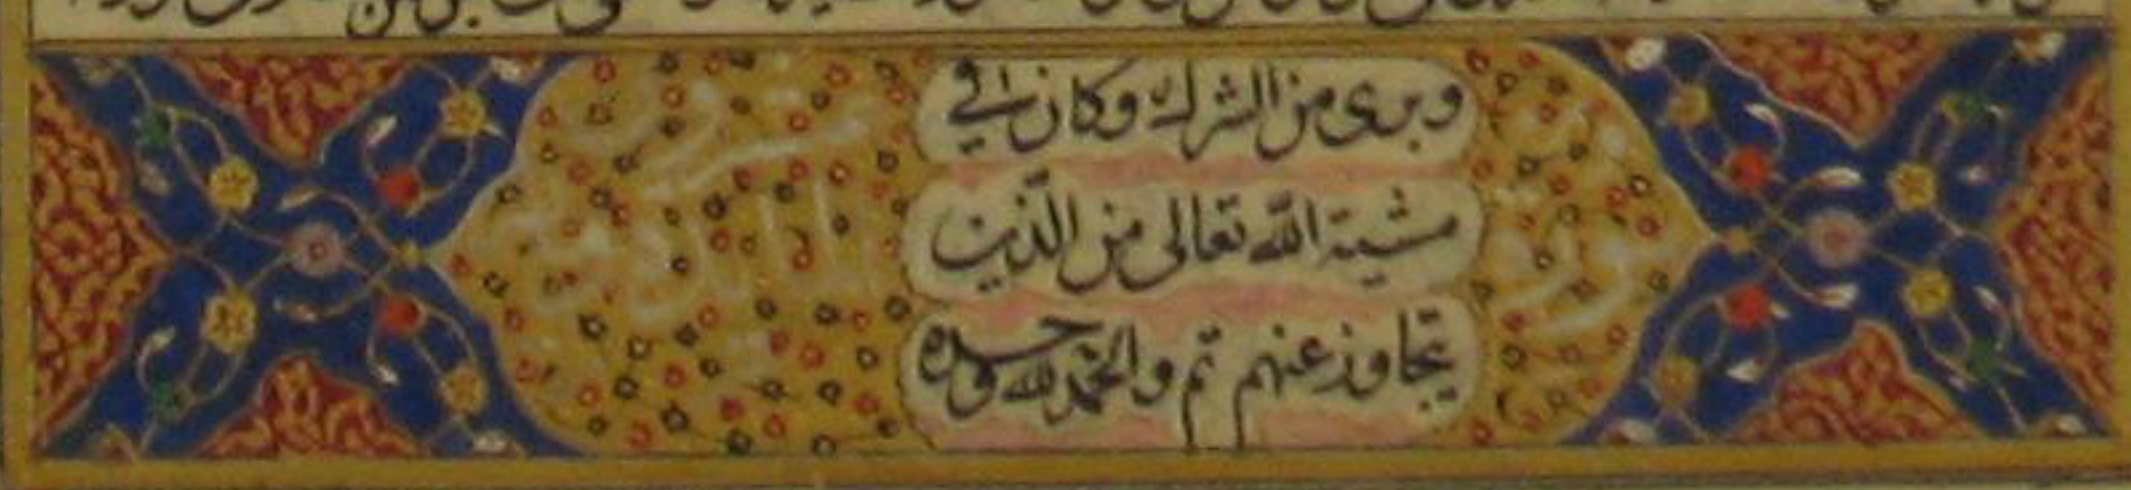 وبرى من الشرك وكان في
مشية الله تعالى من الذين
يتجاوز عنهم تم والحمد لله وحده